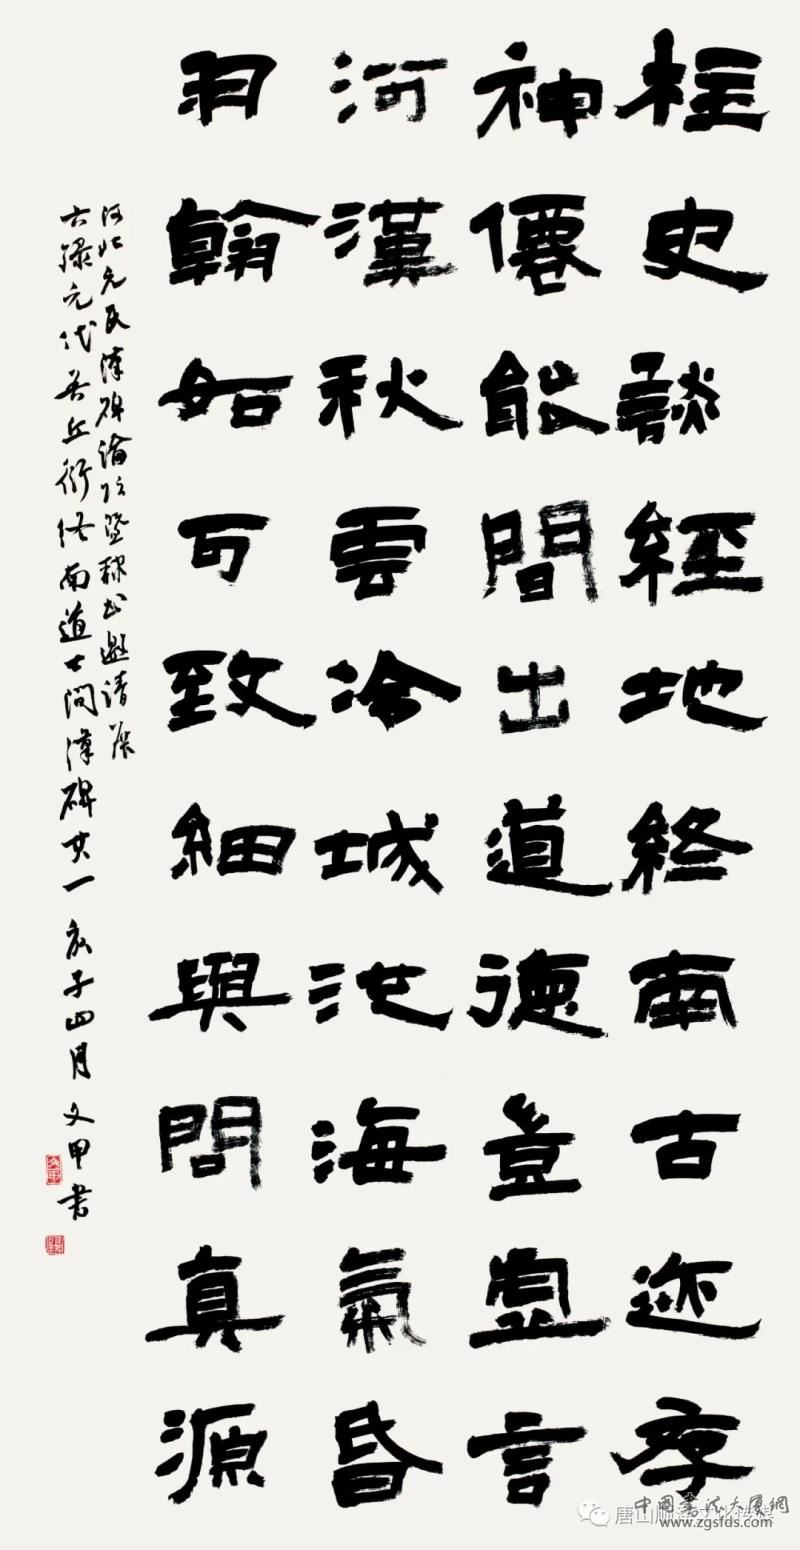 柱史談經地終南古迹存
神僊能間出道德豈虛言
河漢秋雲冷城池海氣昏
羽翰如可致細與問真源
河北元氏漢碑論壇暨隸書邀請展
右錄元代吾丘衍終南道士問漢碑其一 庚子四月文甲書
中国書法大厦網
www.zgsfds.com
唐山